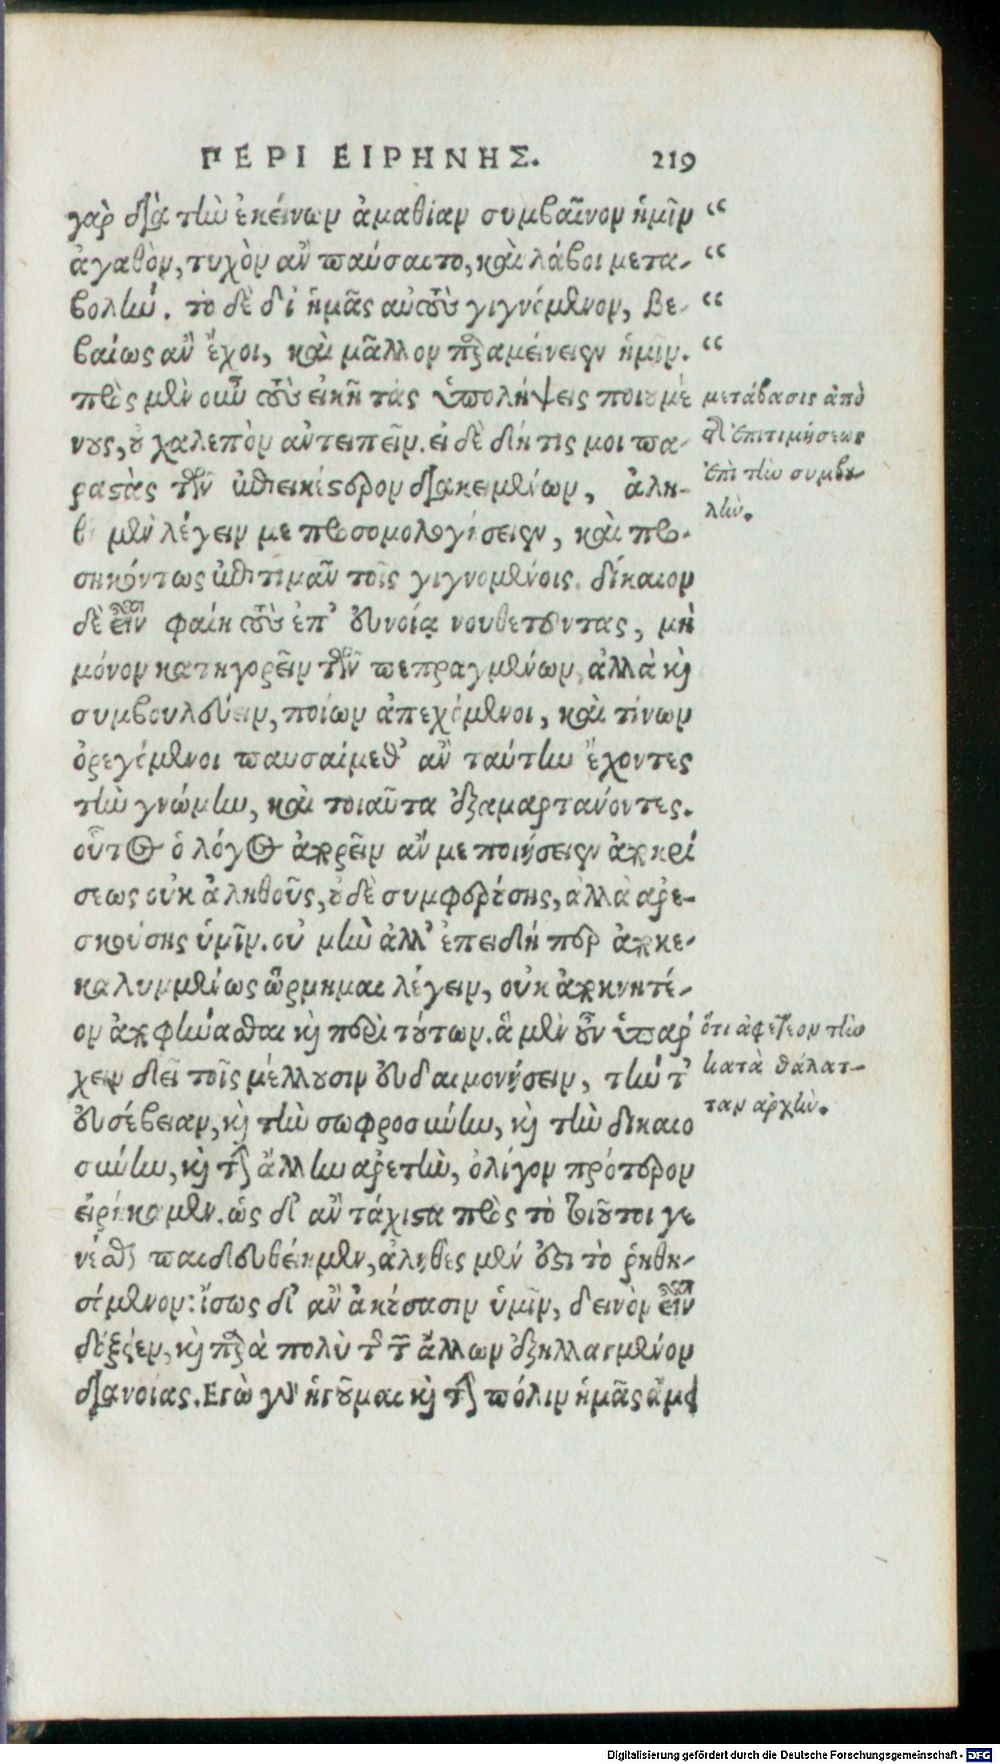 ΠΕΡΙ ΕΙΡΗΝΗΣ. 219
γὰρ διὰ τὴν ἐκείνων ἀμαθίαν συμβαῖνον ἡμῖν “
ἀγαθὸν, τυχὸν ἂν παύσαιτο, καὶ λάβοι μετα- “
βολήν. τὸ δὲ δι' ἡμᾶς αὐτοὺς γιγνόμενον, βε- “
βαίως ἂν ἔχοι, καὶ μᾶλλον παραμείνειεν ἡμῖν. “
πρὸς μὲν οὖν τοὺς εἰκῆ τὰς ὑπολήψεις ποιουμέ
νους, οὐ χαλεπὸν ἀντειπεῖν. εἰ δὲ δή τις μοι πα-
ραστὰς τῶν ἐπιεικέστερον διακειμένων, ἀλη-
θῆ μὲν λέγειν με προσομολογήσειεν, καὶ προ-
σηκόντως ἐπιτιμᾶν τοῖς γιγνομένοις. δίκαιον
δὲ εἶναι φαίη τοὺς ἐπ' εὐνοίᾳ νουθετοῦντας, μὴ
μόνον κατηγορεῖν τῶν πεπραγμένων, ἀλλὰ καὶ
συμβουλεύειν, ποίων ἀπεχόμενοι, καὶ τίνων
ὀρεγόμενοι παυσαίμεθ' ἂν ταύτην ἔχοντες
τὴν γνώμην, καὶ τοιαῦτα ἐξαμαρτάνοντες.
οὗτος ὁ λόγος ἀπορεῖν ἄν με ποιήσειεν ἀποκρί
σεως οὐκ ἀληθοῦς, οὐδὲ συμφερούσης, ἀλλὰ ἀρε-
σκούσης ὑμῖν. οὐ μὴν ἀλλ' ἐπειδή περ ἀποκε-
καλυμμένως ὥρμημαι λέγειν, οὐκ ἀποκνητέ-
ον ἀποφήνασθαι καὶ περὶ τούτων. ἃ μὲν οὖν ὑπάρ
χειν δεῖ τοῖς μέλλουσιν εὐδαιμονήσειν, τήν τ'
εὐσέβειαν, καὶ τὴν σωφροσύνην, καὶ τὴν δικαιο
σύνην, καὶ τὴν ἄλλην ἀρετὴν, ὀλίγον πρότερον
εἰρήκαμεν. ὡς δ' ἂν τάχιστα πρὸς τὸ τοιοῦτοι γε
νέσθαι παιδευθείημεν, ἀληθὲς μέν ἐστι τὸ ῥηθη-
σόμενον: ἴσως δ' ἂν ἀκούσασιν ὑμῖν, δεινὸν εἶναι
δόξειεν, καὶ παρὰ πολὺ τῆς τῶν ἄλλων ἐξηλλαγμένον
διανοίας. Ἐγὼ γὰρ ἡγοῦμαι καὶ τὴν πόλιν ἡμᾶς ἄμει
μετάβασις ἀπὸ
τῆς ἐπιτιμήσεως
ἐπὶ τὴν συμβου-
λήν.
ὅτι ἀφετέον τὴν
κατὰ θάλατ-
ταν ἀρχήν.
Digitalisierung gefördert durch die Deutsche Forschungsgemeinschaft - DFG